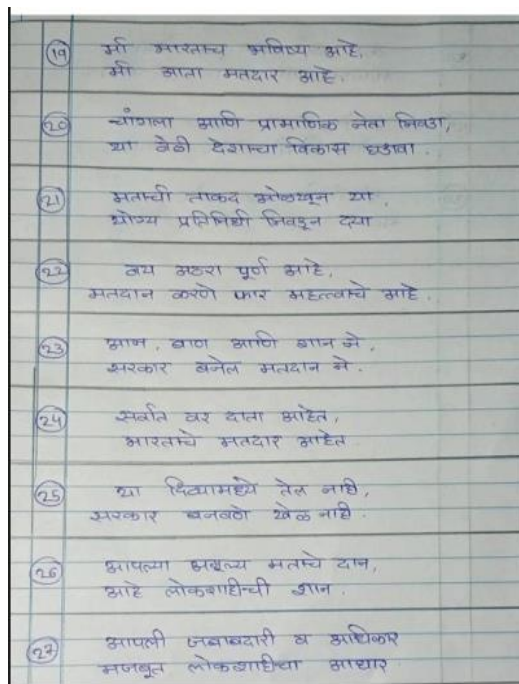 19 मी भारताच भविष्य आहे,
मी आता मतदार आहे.
20 चांगला आणि प्रामाणिक नेता निवडा,
या वेळी देशाच्या विकास घडावा.
21 मताची ताकद ओळखून या,
योग्य प्रतिनिधी निवडून दया
22 वय अठरा पूर्ण आहे,
मतदान करणे फार महत्त्वाचे आहे.
23 आन, बाण आणि शान ने,
सरकार बनेल मतदान ने.
24 सर्वात वर दाता आहेत,
भारताचे मतदार आहेत
25 या दिव्यामध्ये तेल नाही,
सरकार बनवणे खेळ नाही.
26 आपल्या अमूल्य मताचे दान,
आहे लोकशाहीची शान.
27 आपली जबाबदारी व अधिकार
मजबूत लोकशाहीचा आधार